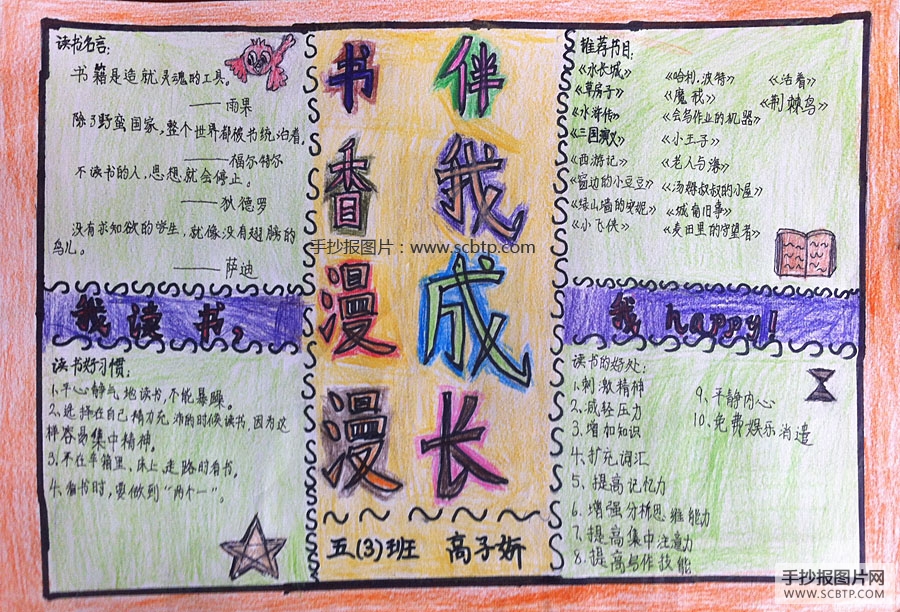 读书名言:
书籍是造就灵魂的工具。
——雨果
除了野蛮国家,整个世界都被书统治着。
——福尔特尔
不读书的人,思想就会停止。
——狄德罗
没有求知欲的学生,就像没有翅膀的
鸟儿。
——萨迪
书香漫漫
伴我成长
手抄报图片:www.scbtp.com
推荐书目:
《水长城》
《草房子》
《水浒传》
《三国演义》
《西游记》
《窗边的小豆豆》
《绿山墙的安妮》
《小飞侠》
《哈利.波特》
《魔戒》
《会写作业的机器》
《小王子》
《老人与海》
《汤姆叔叔的小屋》
《城南旧事》
《麦田里的守望者》
《活着》
《荆棘鸟》
我读书,
我 happy!
读书好习惯:
1.平心静气地读书,不能暴躁。
2.选择在自己精力充沛的时候读书,因为这
样容易集中精神。
3.不在车箱里、床上、走路时看书。
4.看书时,要做到“两个一”。
读书的好处:
1.刺激精神
2.减轻压力
3.增加知识
4.扩充词汇
5、提高记忆力
6.增强分析思维能力
7.提高集中注意力
8.提高写作技能
9.平静内心
10.免费娱乐消遣
五(3)班 高子妍
手抄报图片网
WWW.SCBTP.COM